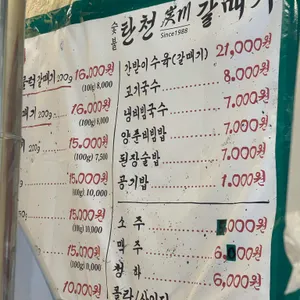 숯불 탄천 갈매기
Since1988
갈매기 200g 16,000원
(100g) 8,000
매기 200g 16,000원
(100g) 8,000
200g 15,000원
(100g) 7,500
15,000원
(100g) 10,000
15,000원
(100g) 10,000
15,000원
(100g) 8,000
10,000원
갈받이수육(갈매기) 21,000원
고기국수 8,000원
냄비빔국수 7,000원
양푼비빔밥 7,000원
된장술밥 7,000원
공기밥 1,000원
소주 ,000원
맥주 6,000원
청하 6,000원
콜라/사이다